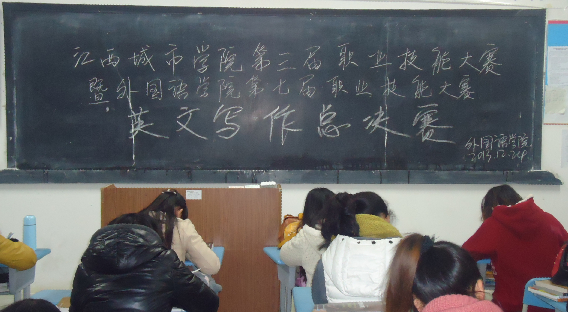 江西城市学院第三届职业技能大赛
暨外国语学院第七届职业技能大赛
英文写作总决赛
外国语学院
2013.12.24